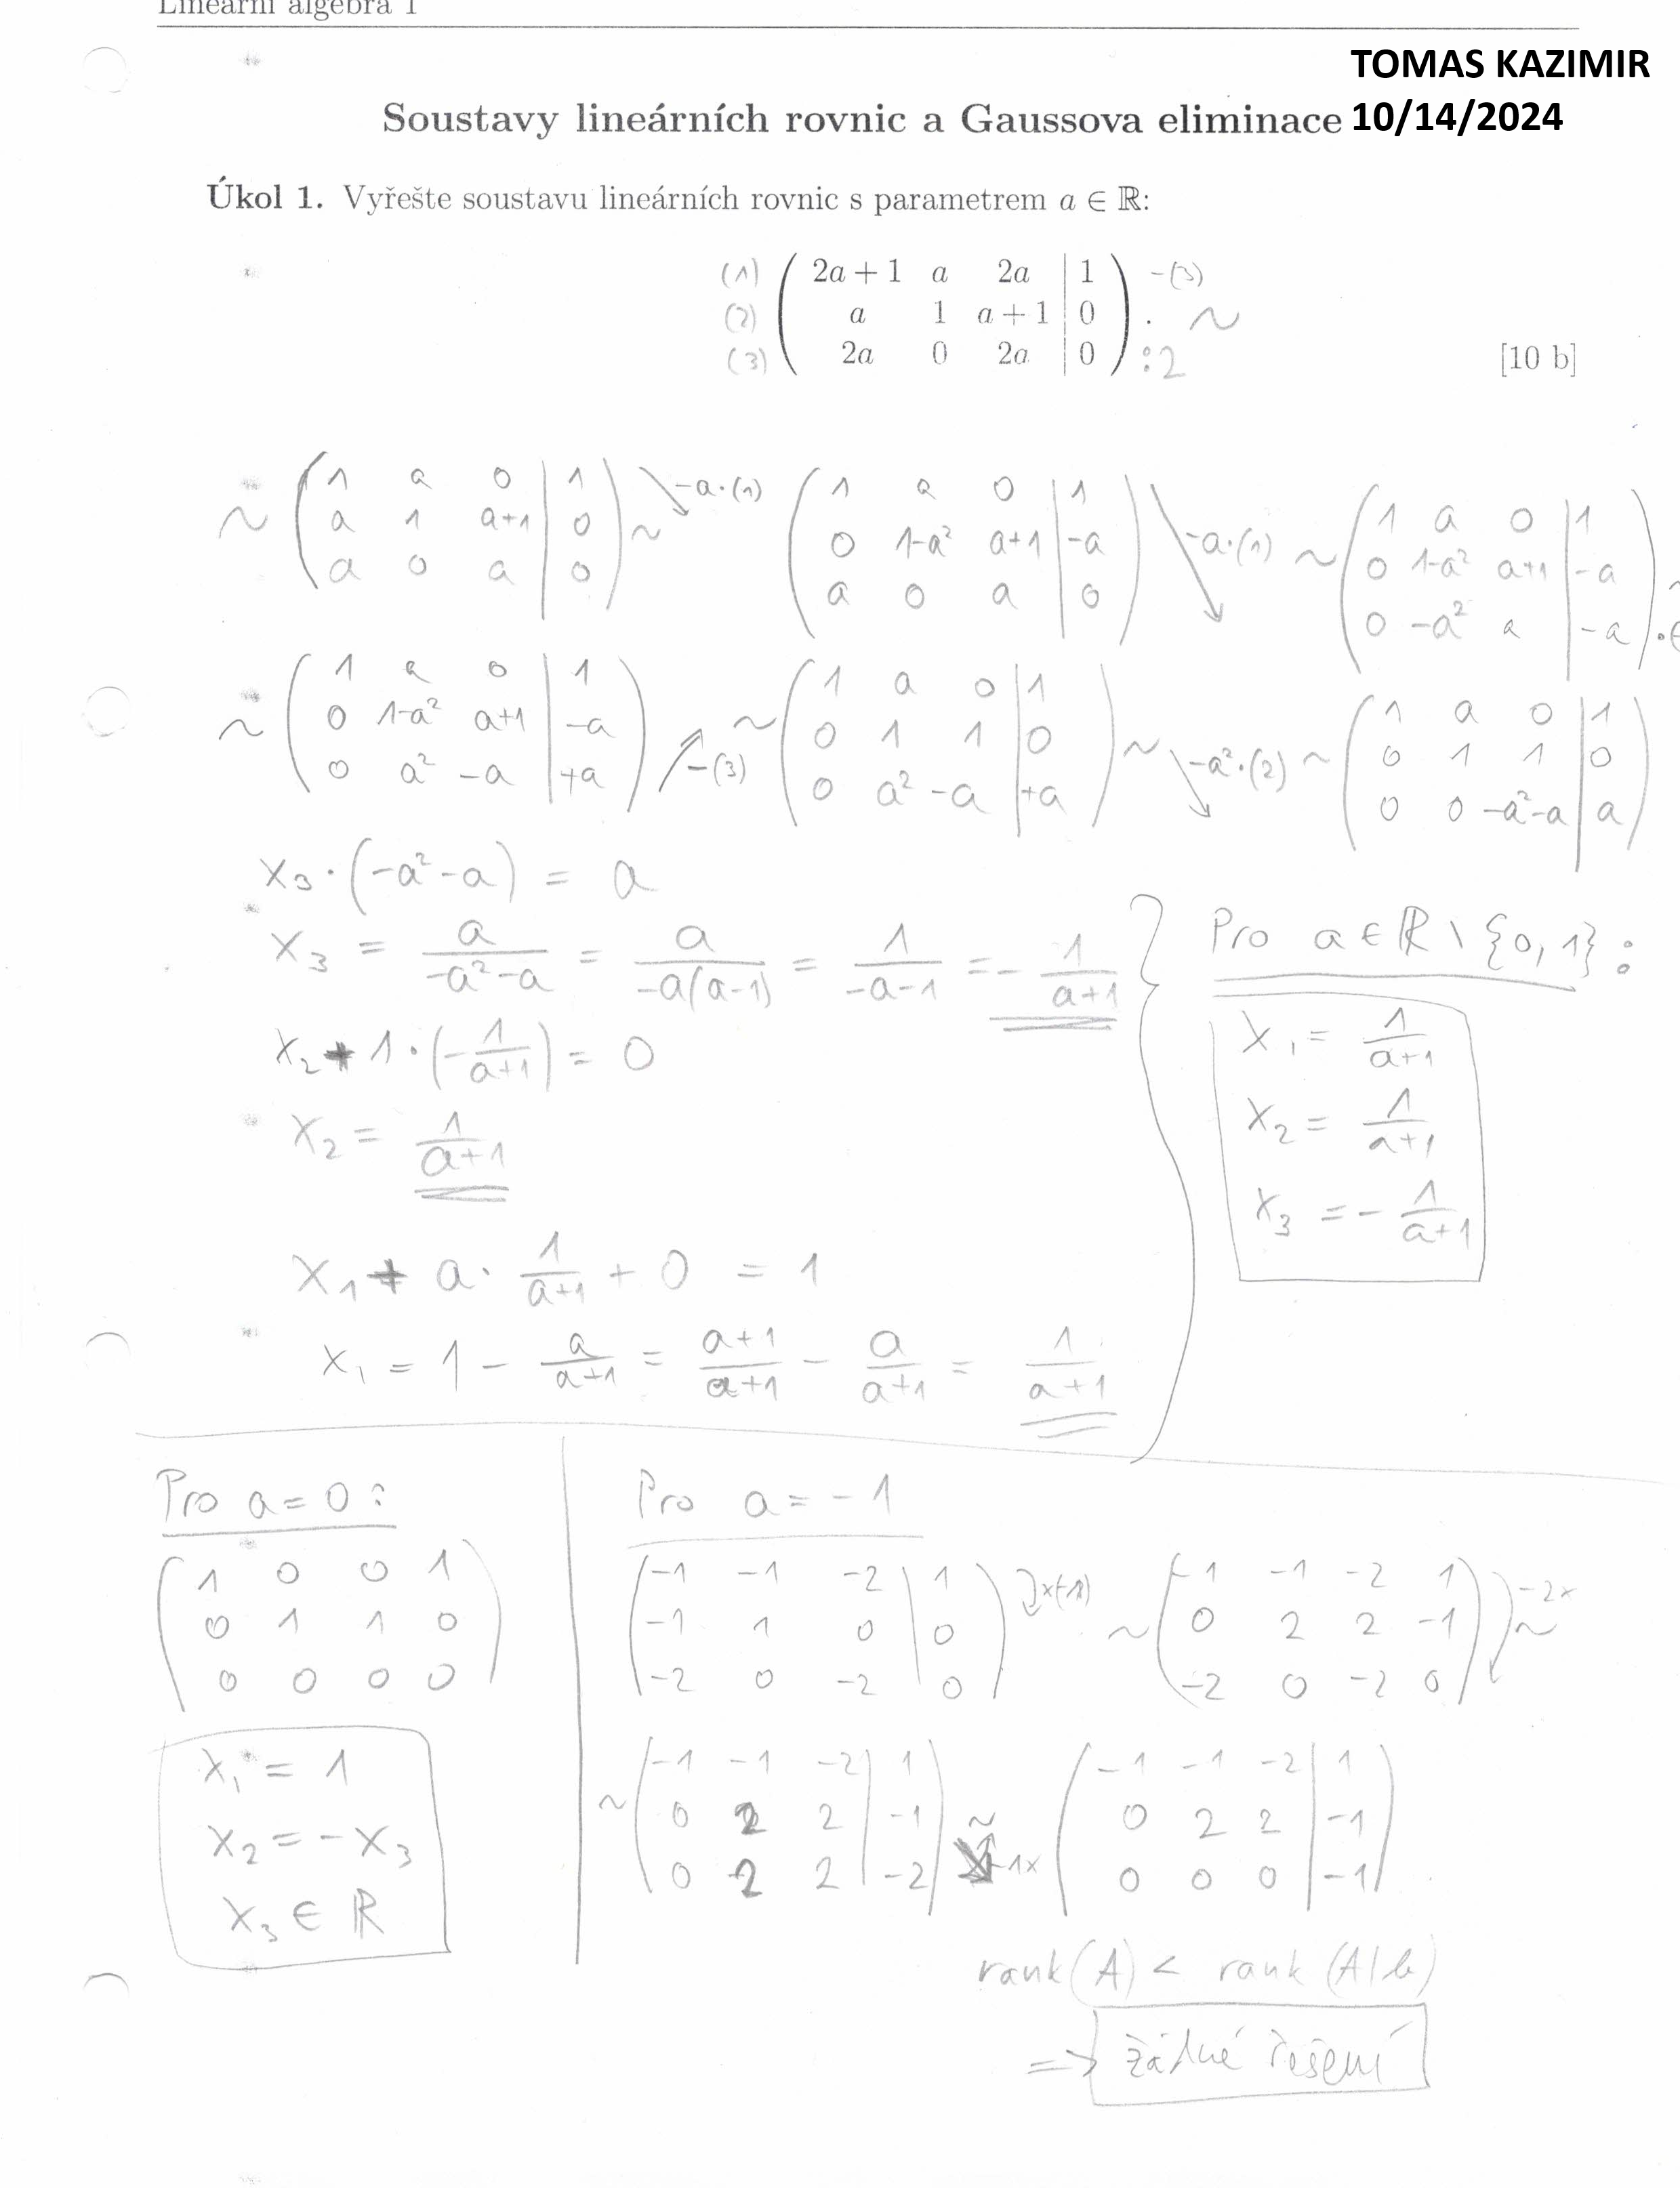 Lineární algebra 1
TOMAS KAZIMIR
10/14/2024
Soustavy lineárních rovnic a Gaussova eliminace
Úkol 1. Vyřešte soustavu lineárních rovnic s parametrem a ∈ ℝ:
(1) ( 2a + 1 a 2a | 1 ) -(3)
(2) ( a 1 a + 1 | 0 ) . ~
(3) ( 2a 0 2a | 0 ) :2
[10 b]
~ ( 1 a 0 | 1 ; a 1 a+1 | 0 ; a 0 a | 0 ) ~ -a·(1) ( 1 a 0 | 1 ; 0 1-a² a+1 | -a ; a 0 a | 0 ) -a·(1) ~ ( 1 a 0 | 1 ; 0 1-a² a+1 | -a ; 0 -a² a | -a ) ~
~ ( 1 a 0 | 1 ; 0 1-a² a+1 | -a ; 0 a² -a | +a ) -(3) ~ ( 1 a 0 | 1 ; 0 1 1 | 0 ; 0 a² -a | +a ) ~ -a²·(2) ~ ( 1 a 0 | 1 ; 0 1 1 | 0 ; 0 0 -a²-a | a )
x₃·(-a²-a) = a
x₃ = a/(-a²-a) = a/(-a(a-1)) = 1/(-a-1) = -1/(a+1)
x₂ + 1·(-1/(a+1)) = 0
x₂ = 1/(a+1)
x₁ + a·1/(a+1) + 0 = 1
x₁ = 1 - a/(a+1) = (a+1)/(a+1) - a/(a+1) = 1/(a+1)
Pro a ∈ ℝ \ {0, 1}:
x₁ = 1/(a+1)
x₂ = 1/(a+1)
x₃ = -1/(a+1)
Pro a = 0:
( 1 0 0 1 ; 0 1 1 0 ; 0 0 0 0 )
x₁ = 1
x₂ = -x₃
x₃ ∈ ℝ
Pro a = -1
( -1 -1 -2 | 1 ; -1 1 0 | 0 ; -2 0 -2 | 0 ) x(-1) ~ ( -1 -1 -2 1 ; 0 2 2 -1 ; -2 0 -2 0 ) -2x ~
~ ( -1 -1 -2 | 1 ; 0 2 2 | -1 ; 0 2 2 | -2 ) ~ -1x ( -1 -1 -2 | 1 ; 0 2 2 | -1 ; 0 0 0 | -1 )
rank(A) < rank(A|b)
=> žádné řešení